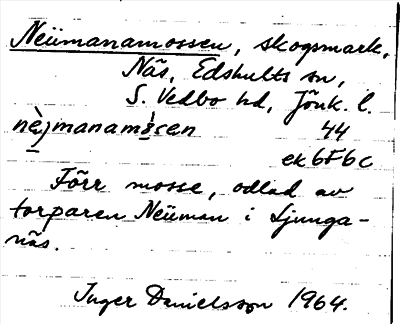 Neümanamossen, skogsmark,
Näs, Edshults sn,
S. Vedbo hd, Jönk. l.
nèjmanamåsen 44
ek 6F6c
Förr mosse, odlad av
torparen Neüman i Ljunga-
näs.
Inger Danielsson 1964.